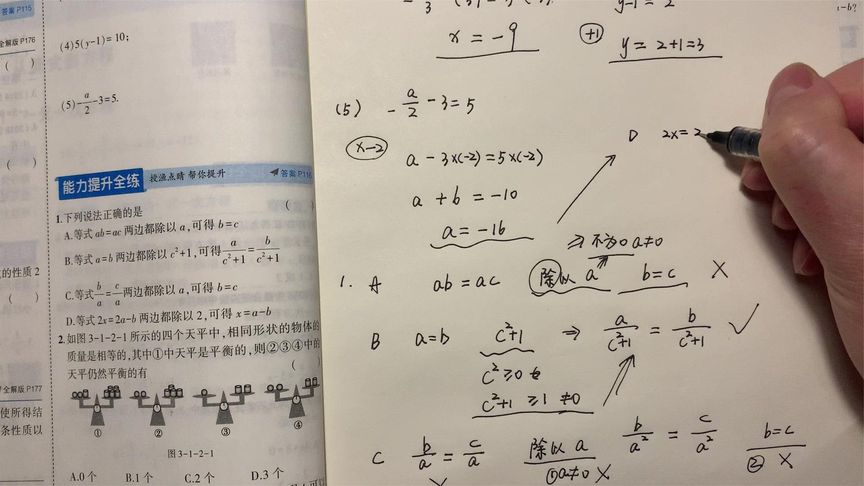 答案P115
全解版P176
(4)5(y-1)=10;
( )
(5)-a/2-3=5.
( )
能力提升全练 授渔点睛 帮你提升 答案P116
1.下列说法正确的是 ( )
A.等式ab=ac两边都除以a,可得b=c
B.等式a=b两边都除以c²+1,可得a/(c²+1)=b/(c²+1)
的性质2
C.等式b/a=c/a两边都除以a,可得b=c
( )
D.等式2x=2a-b两边都除以2,可得x=a-b
2.如图3-1-2-1所示的四个天平中,相同形状的物体的
质量是相等的,其中①中天平是平衡的,则②③④中的
天平仍然平衡的有 ( )
全解版P177
使所得结
条性质以
① ② ③ ④
图3-1-2-1
A.0个 B.1个 C.2个 D.3个
x=-9
y-1=2
+1 y=2+1=3
(5) -a/2-3=5
×-2
a-3×(-2)=5×(-2)
a+b=-10
a=-16
D 2x=2
⇒不为0 a≠0
1. A ab=ac 除以a b=c ×
B a=b c²+1 ⇒ a/(c²+1)=b/(c²+1) ✓
c²≥0
c²+1≥1≠0
C b/a=c/a 除以a b/a²=c/a² b=c
①a≠0 × ② ×